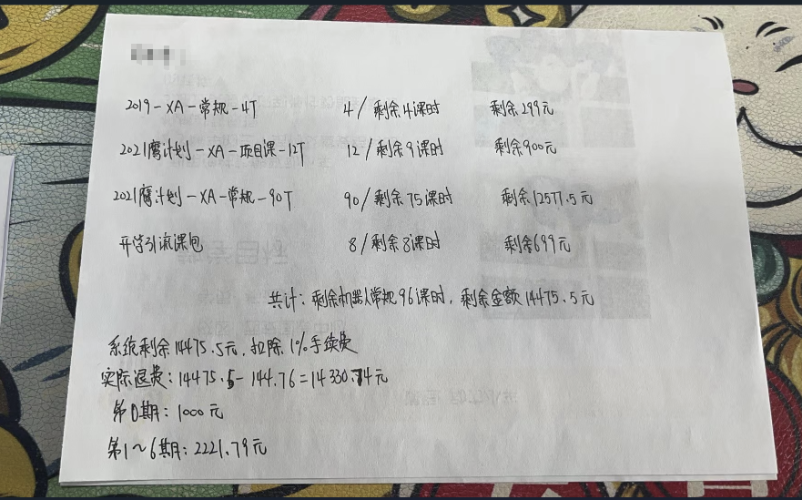 2019-XA-常规-4T 4/剩余4课时 剩余299元
2021鹰计划-XA-项目课-12T 12/剩余9课时 剩余900元
2021鹰计划-XA-常规-90T 90/剩余75课时 剩余12577.5元
开学引流课包 8/剩余8课时 剩余699元
共计：剩余机器人常规96课时，剩余金额14475.5元
系统剩余14475.5元，扣除1%手续费
实际退费：14475.5-144.76=14330.74元
第0期：1000元
第1~6期：2221.79元